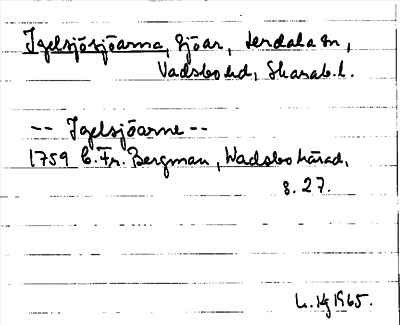 Igelsjösjöarna, sjöar, Lerdala sn,
Vadsbo hd, Skarab. l.
-- Igelsjöarne --
1759 C. Fr. Bergman, Wadsbo härad,
s. 27.
L. Hg 1965.